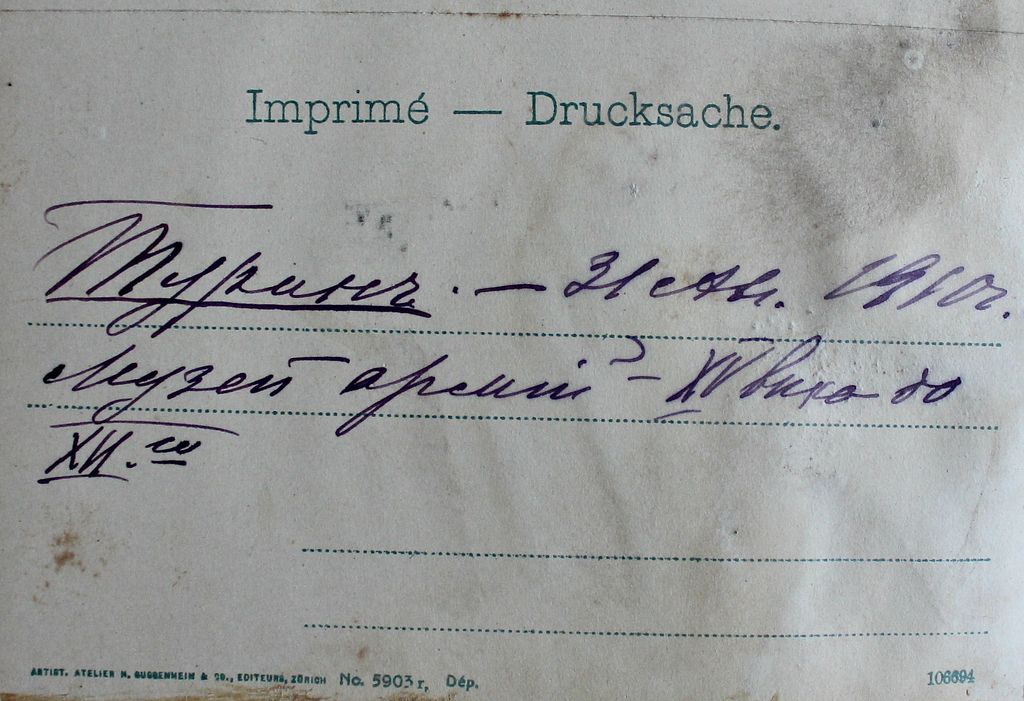 Imprimé — Drucksache.
Туринъ. — 31 Ав. 1910г.
Музей армій — XV вѣка до
XVI.го
ARTIST. ATELIER H. GUGGENHEIM & CO., EDITEURS, ZÜRICH No. 5903 r, Dép.
106694